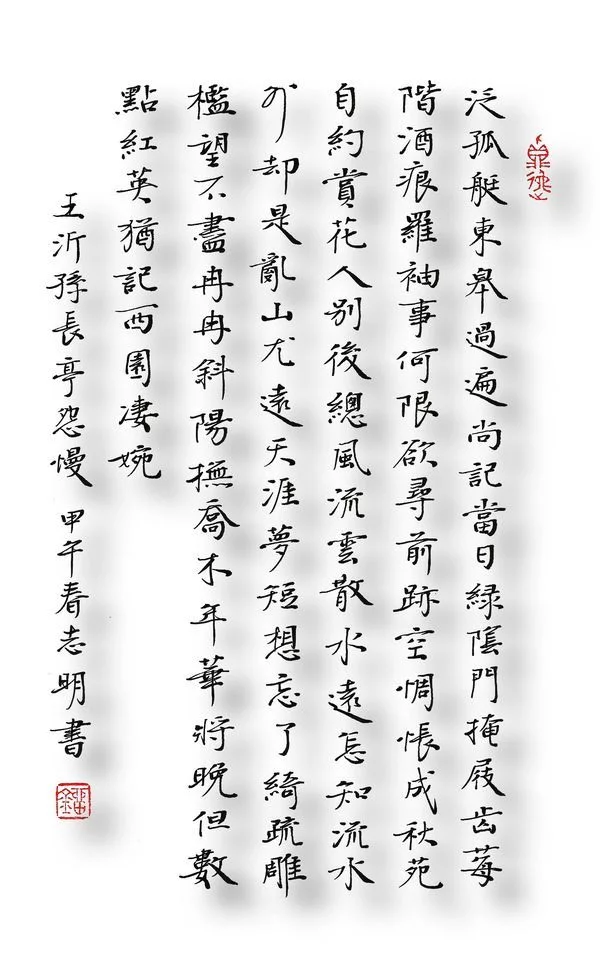 泛孤艇東皋過遍尚記當日緑蔭門掩屐齒莓
階酒痕羅袖事何限欲尋前跡空惆悵成秋苑
自約賞花人別後總風流雲散水遠怎知流水
外却是亂山尤遠天涯夢短想忘了綺疏雕
檻望不盡冉冉斜陽撫喬木年華將晚但數
點紅英猶記西園凄婉
王沂孫長亭怨慢 甲午春志明書